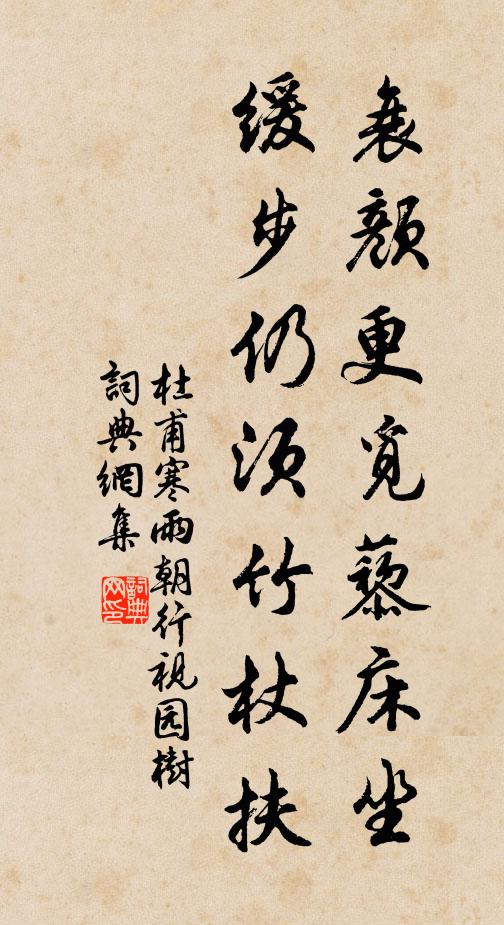 衰颜更觅藜床坐
缓步仍须竹杖扶
杜甫寒雨朝行视园树
詞典網集
詞典網印